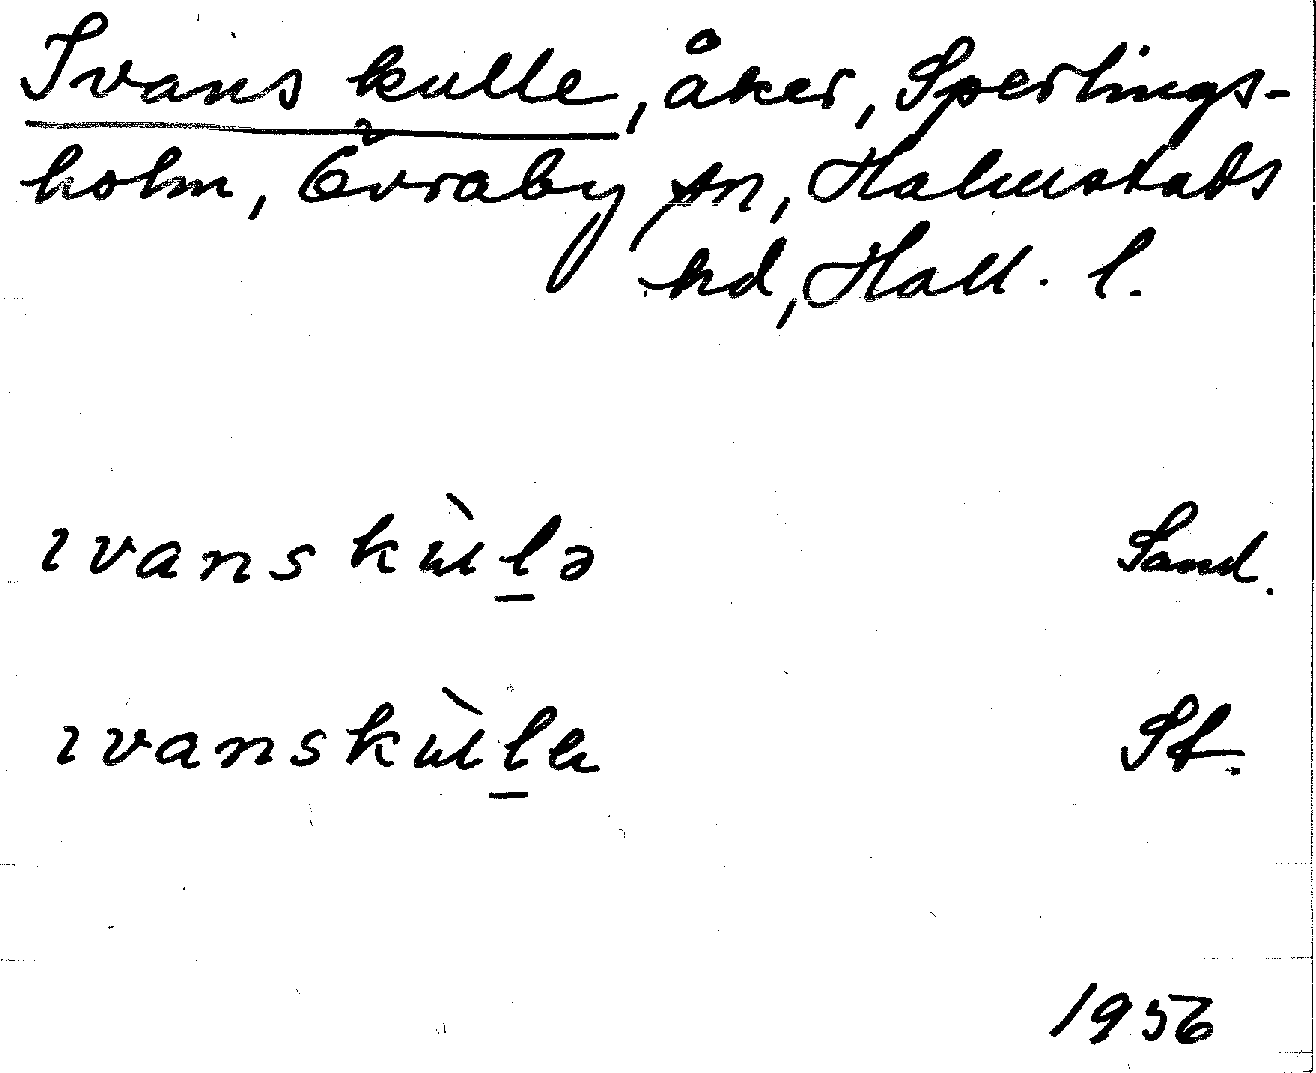 Ivans kulle, åker, Sperlings-
holm, Övraby sn, Halmstads
hd, Hall. l.
ıvanskùlə Sand.
ıvanskùla St.
1956